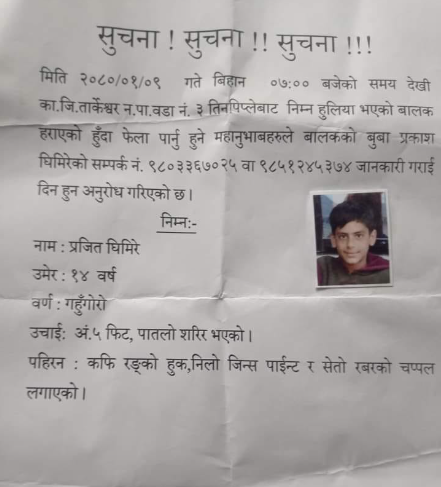 सुचना ! सुचना !! सुचना !!!
मिति २०८०/०१/०९ गते बिहान ०७:०० बजेको समय देखी
का.जि.तार्केश्वर न.पा.वडा नं. ३ तिनपिप्लेबाट निम्न हुलिया भएको बालक
हराएको हुँदा फेला पार्नु हुने महानुभाबहरुले बालकको बुबा प्रकाश
घिमिरेको सम्पर्क नं. ९८०३३६७०२५ वा ९८५१२४५३७४ जानकारी गराई
दिन हुन अनुरोध गरिएको छ।
निम्न:-
नाम : प्रजित घिमिरे
उमेर : १४ वर्ष
वर्ण : गहुँगोरो
उचाई: अं.५ फिट, पातलो शरिर भएको।
पहिरन : कफि रङ्को हुक,निलो जिन्स पाईन्ट र सेतो रबरको चप्पल
लगाएको।